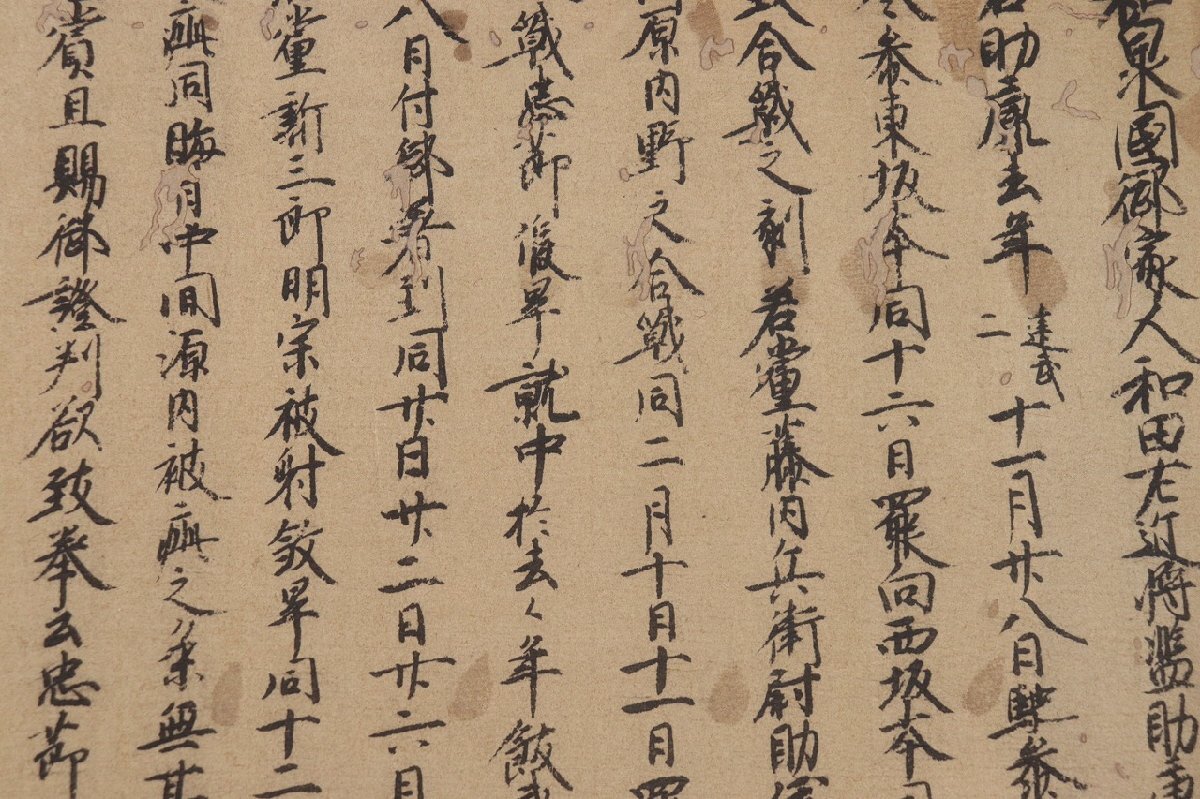 和泉國御家人和田左近将監助康
助康去年建武二十一月廿八日馳参
参東坂本同十六日罷向西坂本同
合戦之刻若黨藤内兵衛尉助俊
原内野之合戦同二月十日十一日罷
戦忠節候畢就中於去々年
八月付御着到同廿日廿二日廿六日
黨新三郎明宗被射敓畢同十二
疵同晦日中間源内被疵之条無其
賞且賜御證判欲致奉公忠節